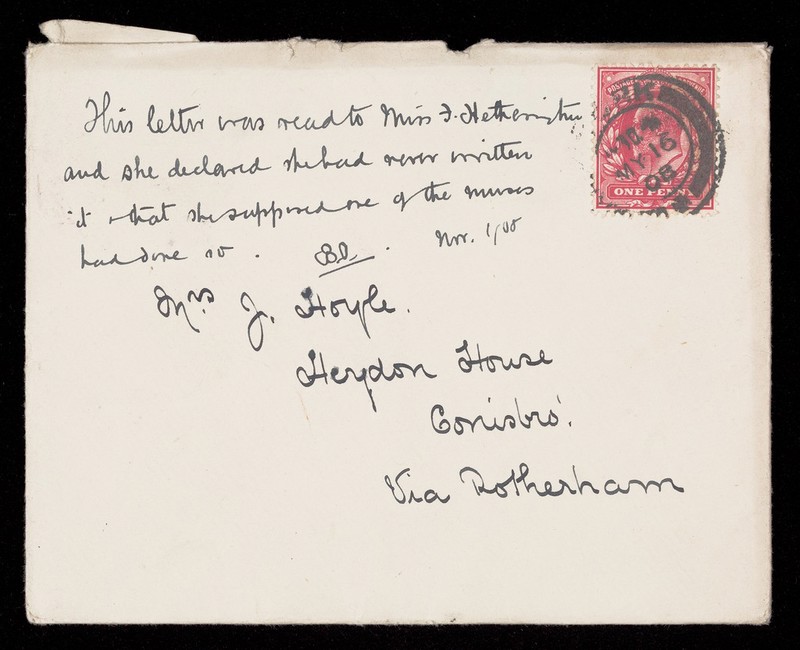 This letter was read to Miss F. Hetherington
and she declared she had never written
it & that she supposed one of the nurses
had done so. BD. Nov. 1/05
Mrs J. Hoyle.
Heydon House
Conisbro'.
Via Rotherham
POSTAGE
YORK
MY 16
05
ONE PENNY